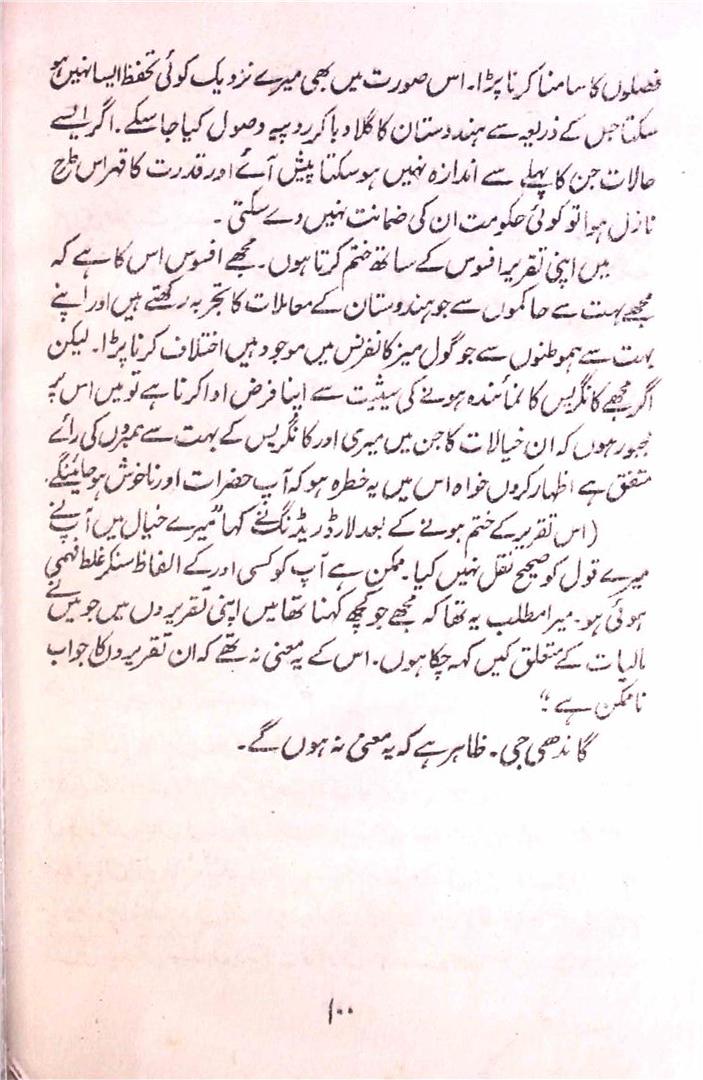 فصلوں کا سامنا کرنا پڑا۔ اس صورت میں بھی میرے نزدیک کوئی تحفظ ایسا نہیں ہو
سکتا جس کے ذریعہ سے ہندوستان کا گلا دبا کر روپیہ وصول کیا جا سکے۔ اگر ایسے
حالات جن کا پہلے سے اندازہ نہیں ہو سکتا پیش آئے اور قدرت کا قہر اس طرح
نازل ہوا تو کوئی حکومت ان کی ضمانت نہیں دے سکتی۔
میں اپنی تقریر افسوس کے ساتھ ختم کرتا ہوں۔ مجھے افسوس اس کا ہے کہ
مجھے بہت سے حاکموں سے جو ہندوستان کے معاملات کا تجربہ رکھتے ہیں اور اپنے
بہت سے ہموطنوں سے جو گول میز کانفرنس میں موجود ہیں اختلاف کرنا پڑا۔ لیکن
اگر مجھے کانگریس کا نمائندہ ہونے کی حیثیت سے اپنا فرض ادا کرنا ہے تو میں اس پر
مجبور ہوں کہ ان خیالات کا جن میں میری اور کانگریس کے بہت سے ممبروں کی رائے
متفق ہے اظہار کروں خواہ اس میں یہ خطرہ ہو کہ آپ حضرات اور ناخوش ہو جائینگے۔
(اس تقریر کے ختم ہونے کے بعد لارڈ ریڈنگ نے کہا "میرے خیال میں آپ نے
میرے قول کو صحیح نقل نہیں کیا۔ ممکن ہے آپ کو کسی اور کے الفاظ سنکر غلط فہمی
ہوئی ہو۔ میرا مطلب یہ تھا کہ مجھے جو کچھ کہنا تھا میں اپنی تقریروں میں جو میں نے
مالیات کے متعلق کیں کہہ چکا ہوں۔ اس کے یہ معنی نہ تھے کہ ان تقریروں کا جواب
ناممکن ہے؛"
گاندھی جی۔ ظاہر ہے کہ یہ معنی نہ ہوں گے۔
۱۰۰